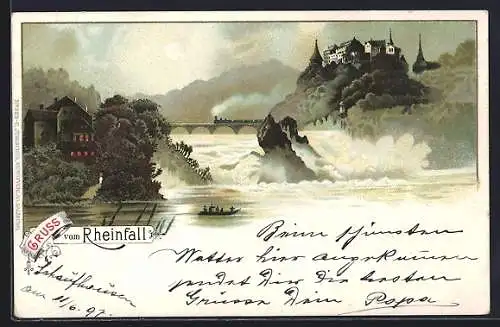 GRUSS
vom Rheinfall
Schaffhausen
am 11/6 97.
Beim schönsten
Wetter hier angekommen
sendet Dir die besten
Grüsse Dein Papa